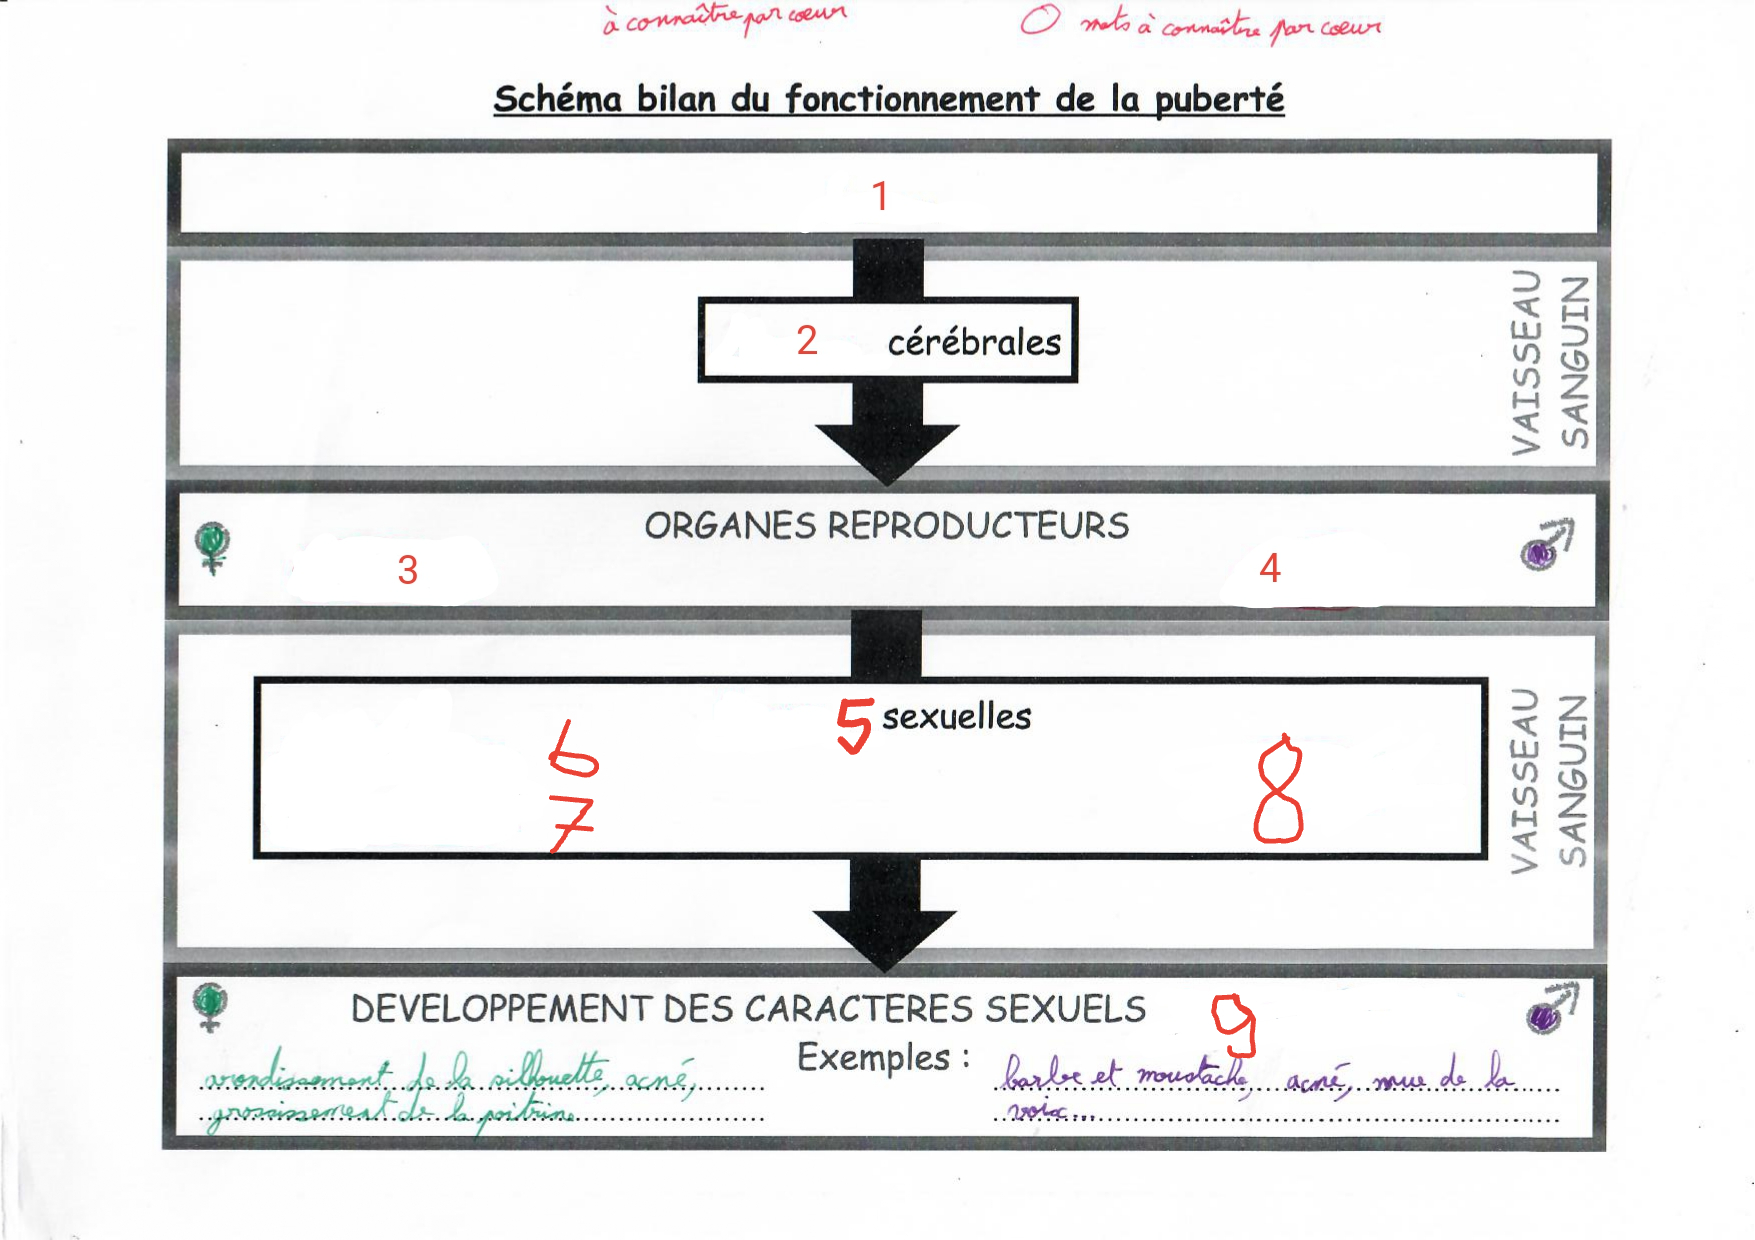 à connaître par coeur
O mots à connaître par coeur
Schéma bilan du fonctionnement de la puberté
1
2 cérébrales
VAISSEAU
SANGUIN
ORGANES REPRODUCTEURS
3
4
5 sexuelles
6
7
8
VAISSEAU
SANGUIN
DEVELOPPEMENT DES CARACTERES SEXUELS 9
Exemples :
arondissement de la silhouette, acné,
grossissement de la poitrine
barbe et moustache, acné, mue de la
voix...